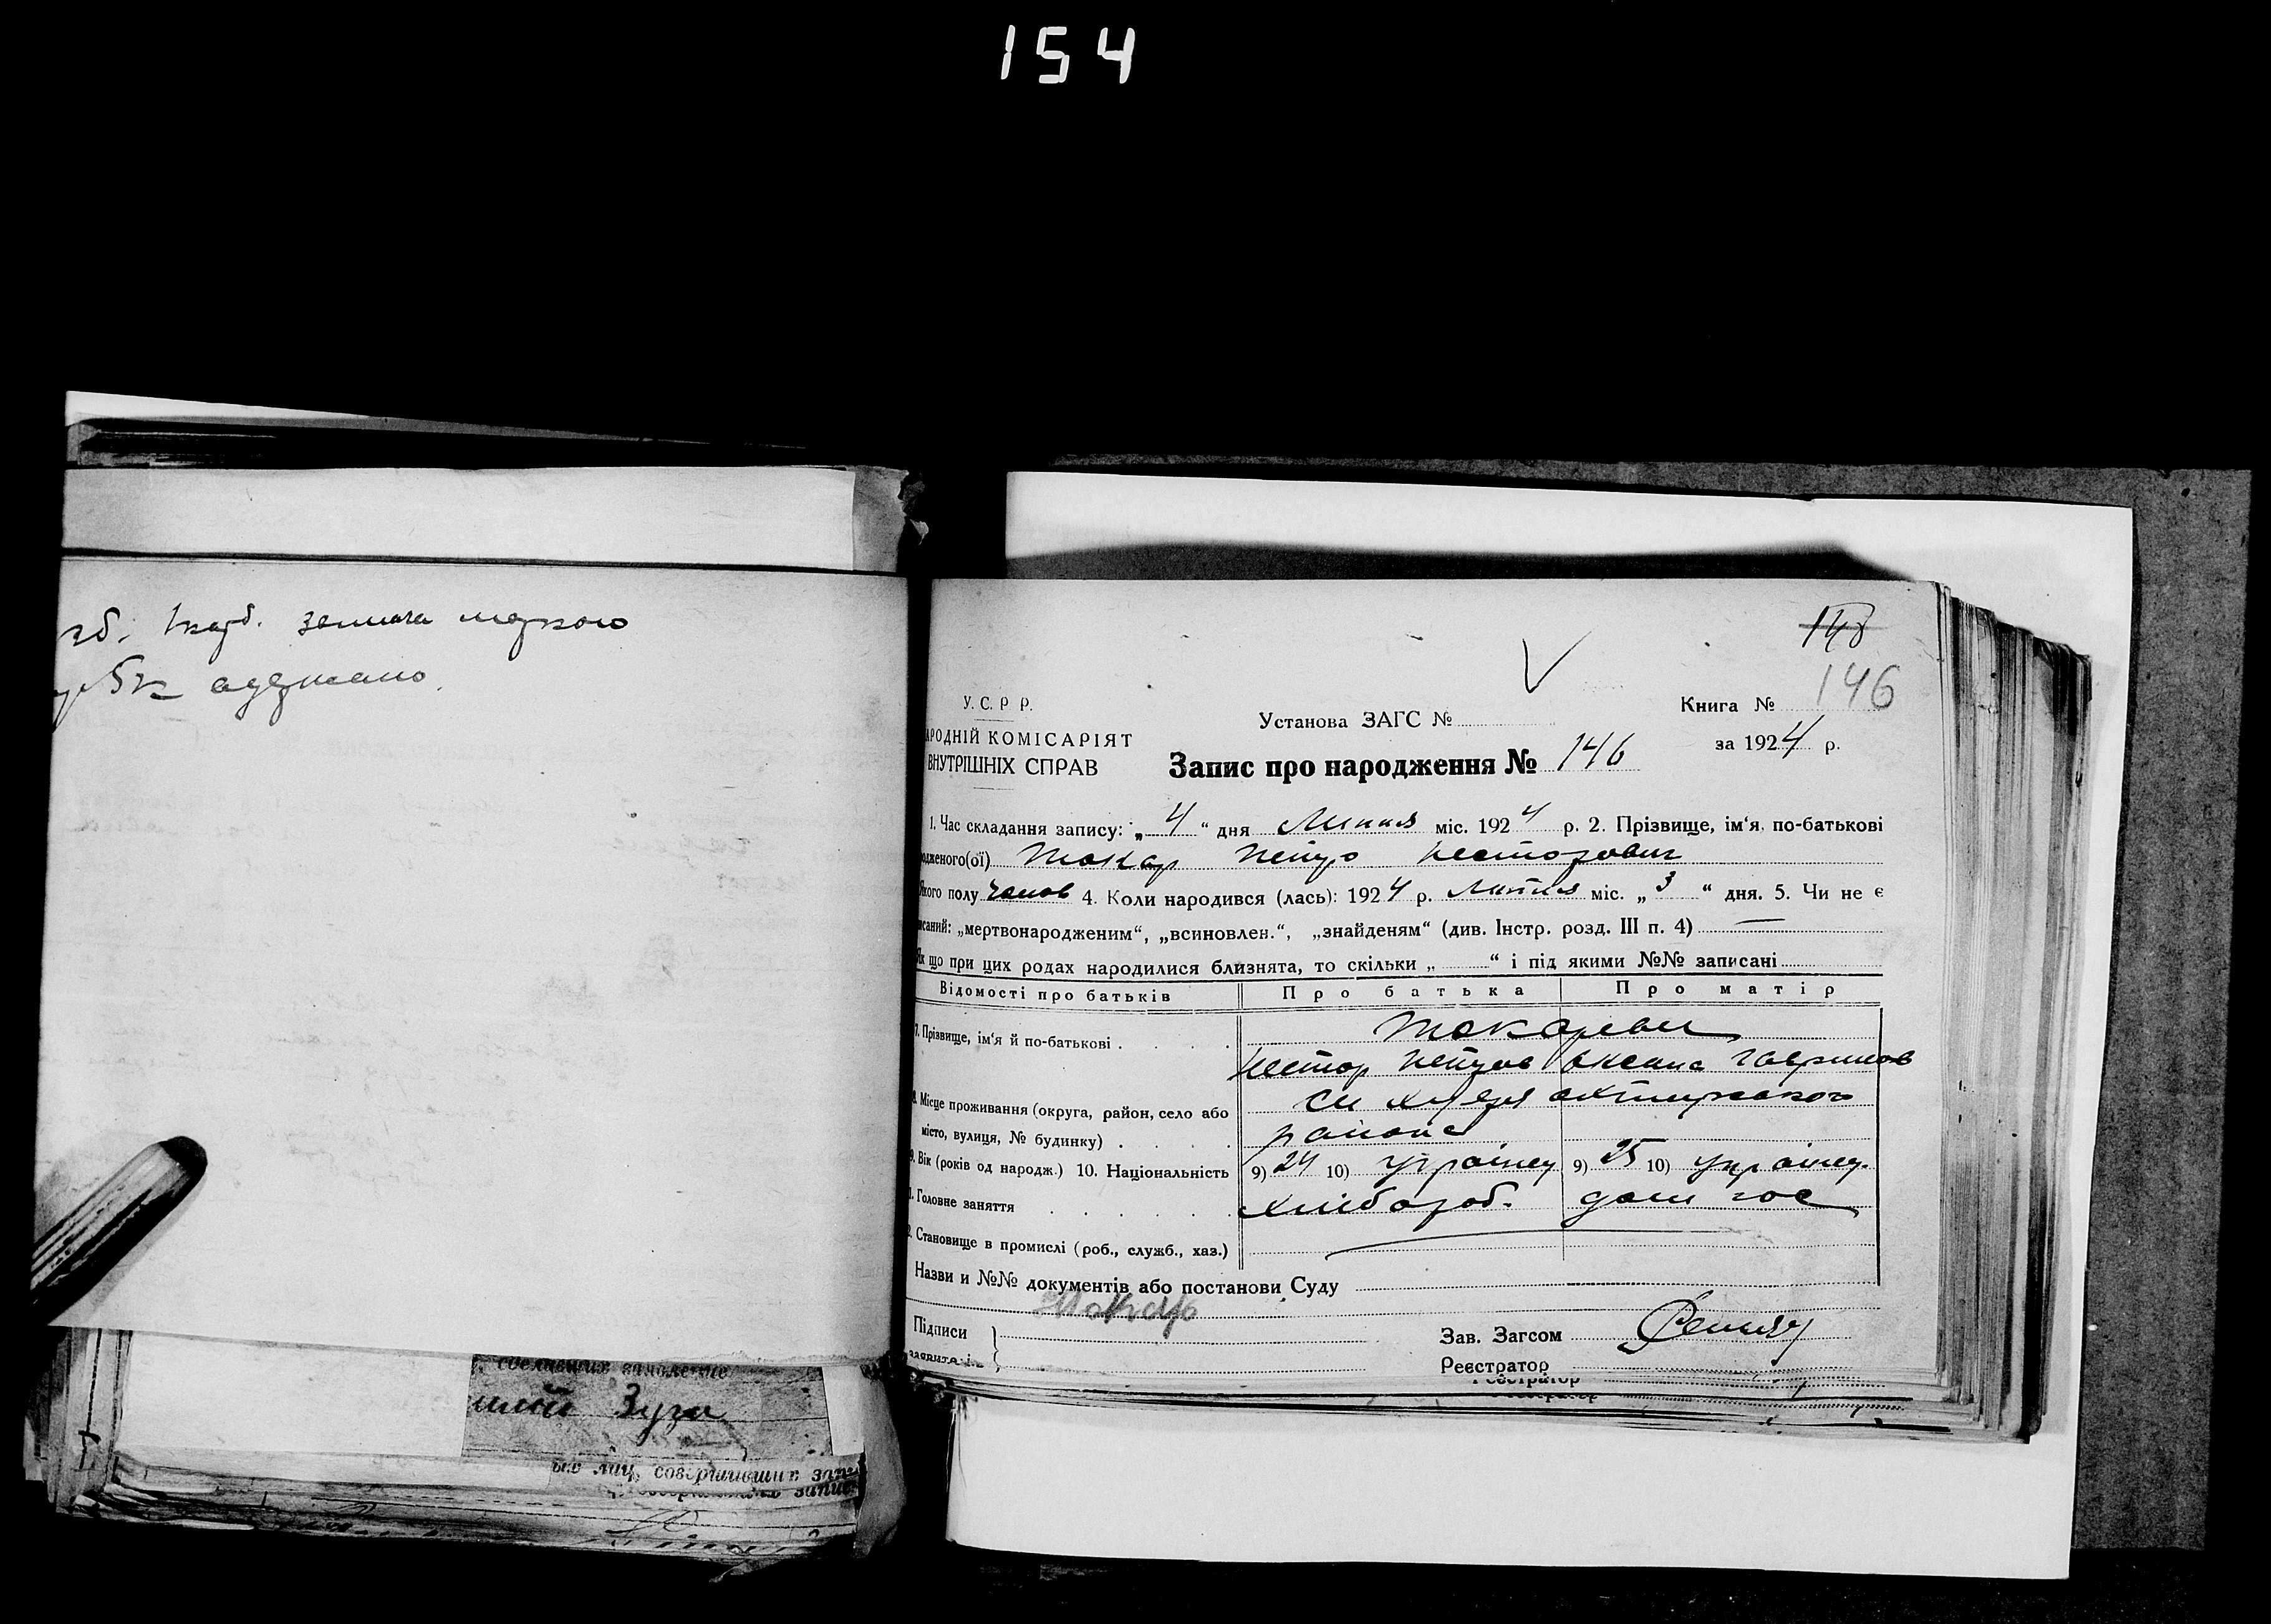 154
зб. 1 карб.
одержано.
148
146
У. С. Р Р.
Книга №
Установа ЗАГС №
АРОДНІЙ КОМІСАРІЯТ
за 1924 р.
ВНУТРІШНІХ СПРАВ
Запис про народження № 146
1. Час складання запису: „4" дня Липня міс. 1924 р. 2. Прізвище, ім'я, по-батькові
одженого(ої) Токар Петро Несторович
Якого полу чолов 4. Коли народився (лась): 1924 р. Липня міс. „3" дня. 5. Чи не є
исаний: „мертвонародженим", „всиновлен.", „знайденям" (див. Інстр. розд. III п. 4) —
Як що при цих родах народилися близнята, то скільки „ " і під якими №№ записані
Відомості про батьків Про батька Про матір
7. Прізвище, ім'я й по-батькові . . . . Токареви
Нестор Петров Оксана Гаврилов
8. Місце проживання (округа, район, село або
сл Хухря Охтирського
місто, вулиця, № будинку) . . . . района
9. Вік (років од народж.) 10. Національність 9) 24 10) українец 9) 25 10) українец.
1. Головне заняття . . . . . . хлібороб. дом гос
2. Становище в промислі (роб., служб., хаз.)
Назви и №№ документів або постанови Суду
Токарь
Підписи
Зав. Загсом
заявителів
Реєстратор
Реєстратор
сделавших заявление
Зуза
ых лиц, совершивших запи